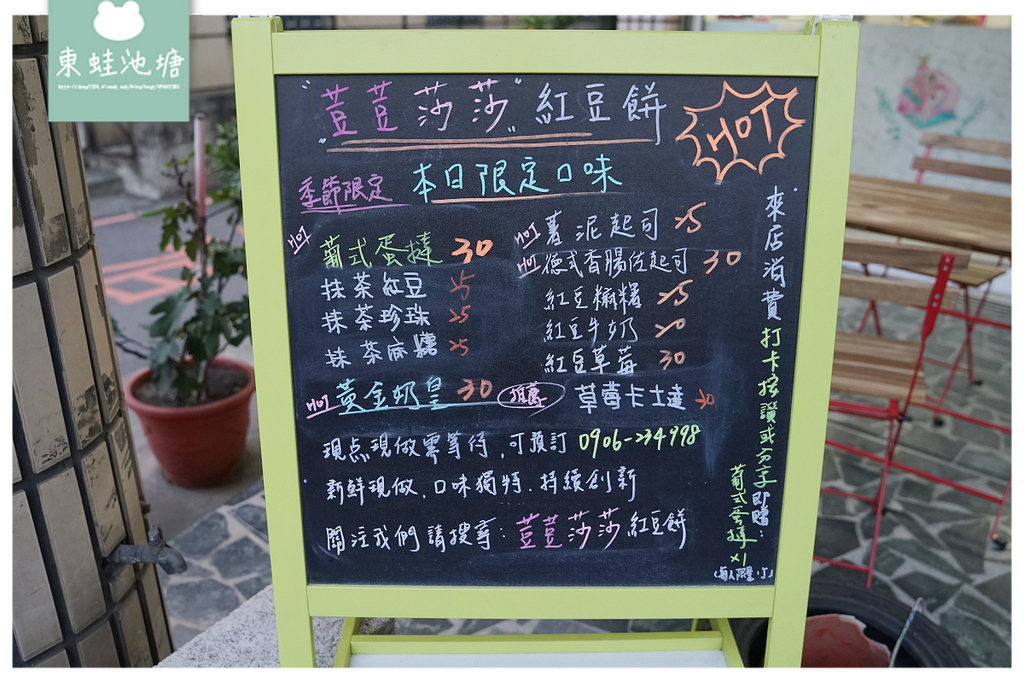 東蛙池塘
"荳荳莎莎"紅豆餅
HOT
季節限定 本日限定口味
HOT 葡式蛋撻 30
抹茶紅豆 25
抹茶珍珠 25
抹茶麻糬 25
HOT 黃金奶皇 30 推薦
HOT 薯泥起司 25
HOT 德式香腸佐起司 30
紅豆麻糬 25
紅豆牛奶 20
紅豆草莓 30
草莓卡士達 30
現点現做需等待,可預訂 0906-234998
新鮮現做.口味獨特.持續創新
關注我們請搜尋:荳荳莎莎紅豆餅
來店消費打卡按讚或分享即贈:
葡式蛋撻x1